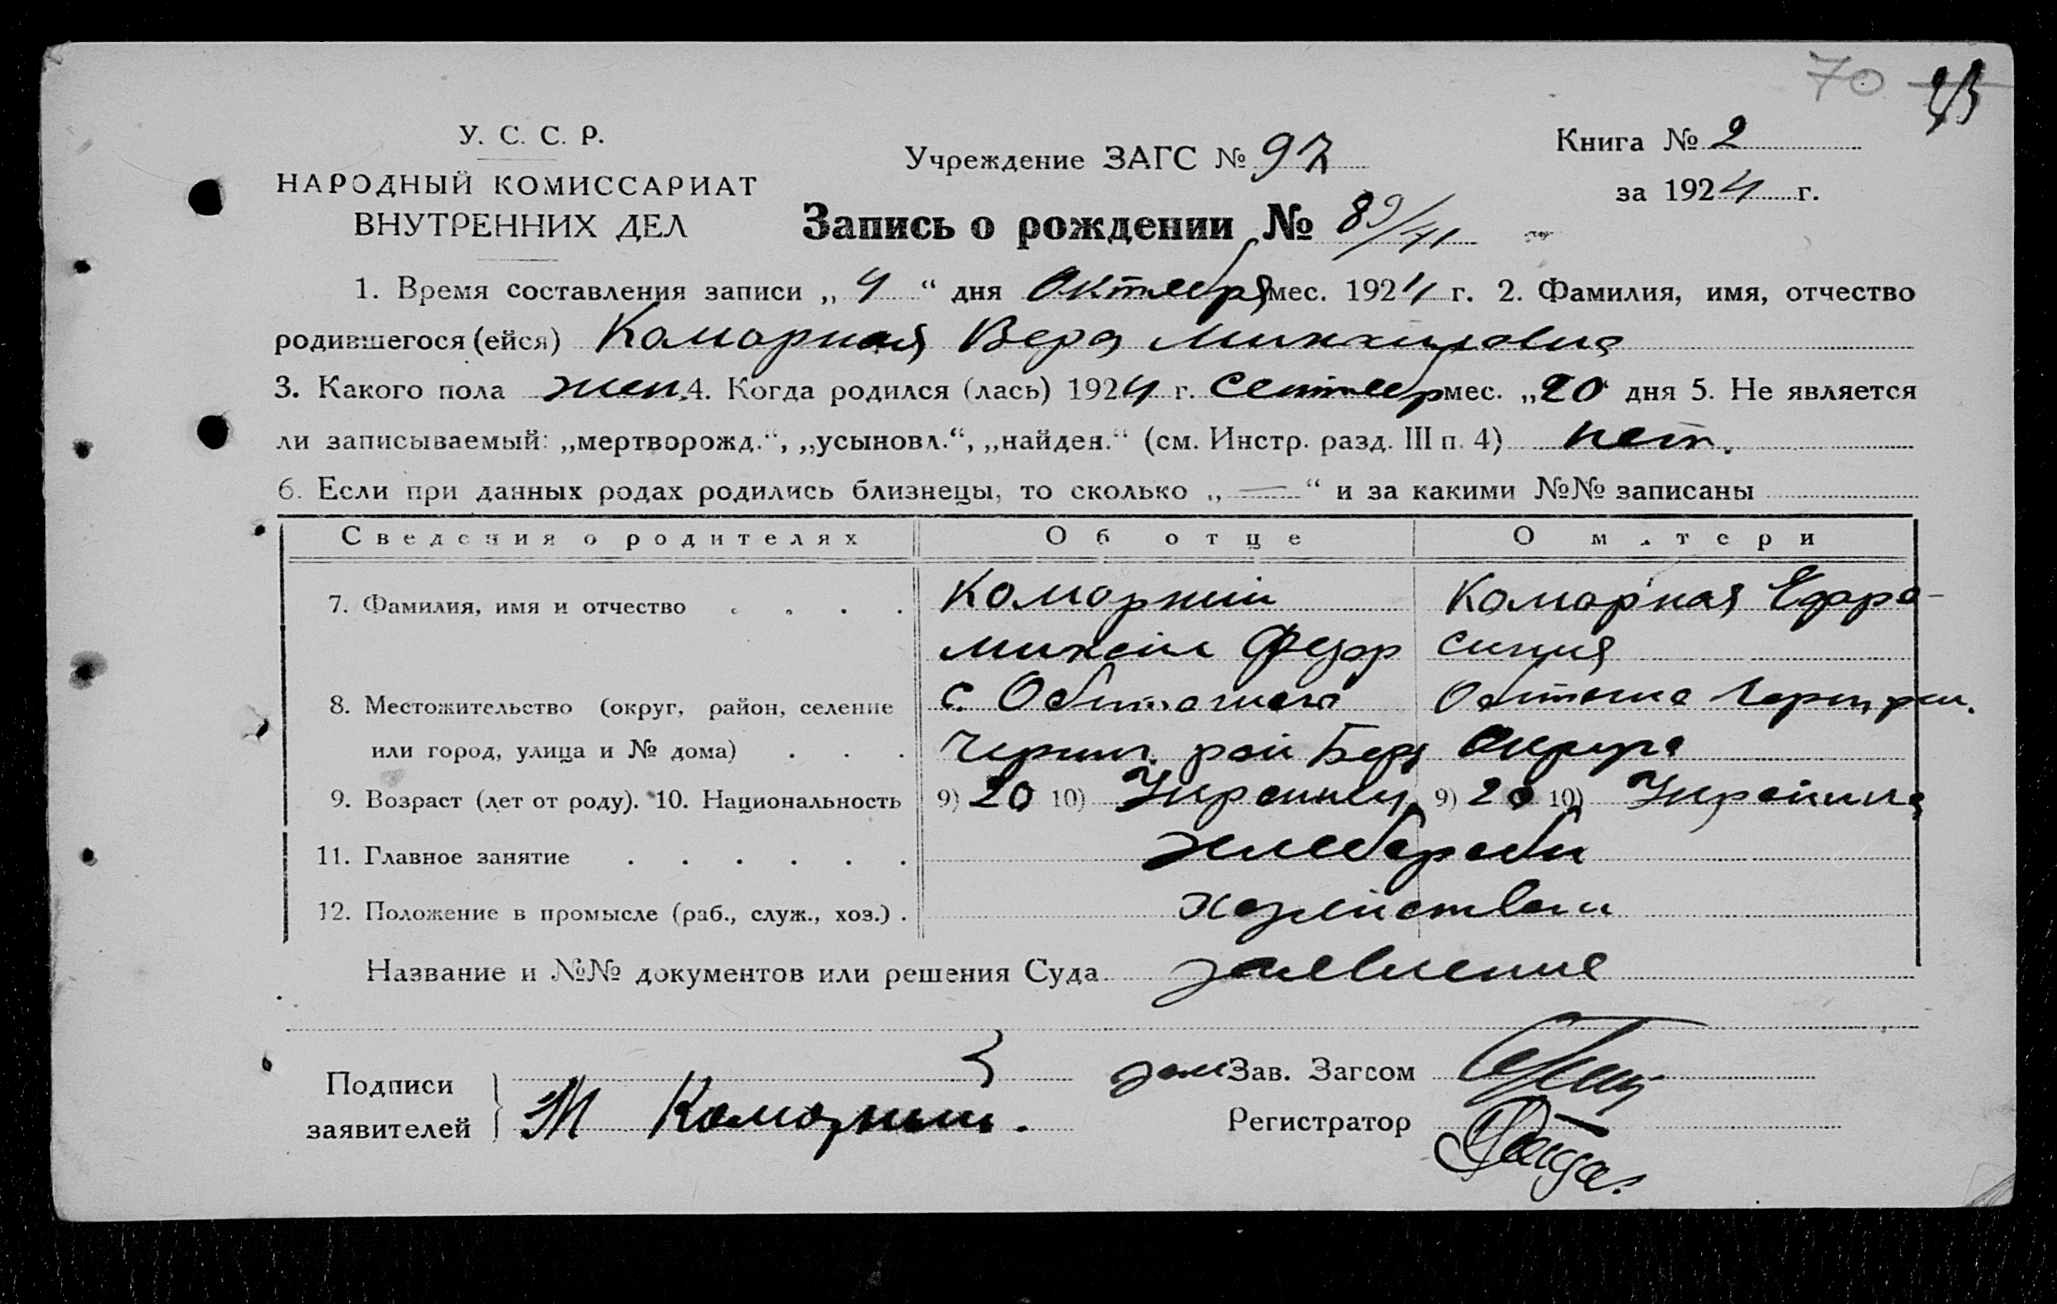 70
У. С. С. Р.
НАРОДНЫЙ КОМИССАРИАТ
ВНУТРЕННИХ ДЕЛ
Учреждение ЗАГС № 92
Книга № 2
за 1924 г.
Запись о рождении № 89/41
1. Время составления записи „ 4 “ дня Октября мес. 1924 г. 2. Фамилия, имя, отчество
родившегося (ейся) Комарная Вера
3. Какого пола жен. 4. Когда родился (лась) 1924 г. сентябр мес. „20 дня 5. Не является
ли записываемый: „мертворожд.“, „усыновл.“, „найден.“ (см. Инстр. разд. III п. 4) нет.
6. Если при данных родах родились близнецы, то сколько „ — “ и за какими №№ записаны
Сведения о родителях Об отце О матери
7. Фамилия, имя и отчество . . . . Комарний Комарная Ефро-
Михаил Федор синия
8. Местожительство (округ, район, селение с.
или город, улица и № дома) . . . рай Округа
9. Возраст (лет от роду). 10. Национальность 9) 20 10) 9) 20 10)
11. Главное занятие . . . . . .
12. Положение в промысле (раб., служ., хоз.) .
Название и №№ документов или решения Суда заявление
Подписи зам Зав. Загсом
заявителей М Комарный. Регистратор